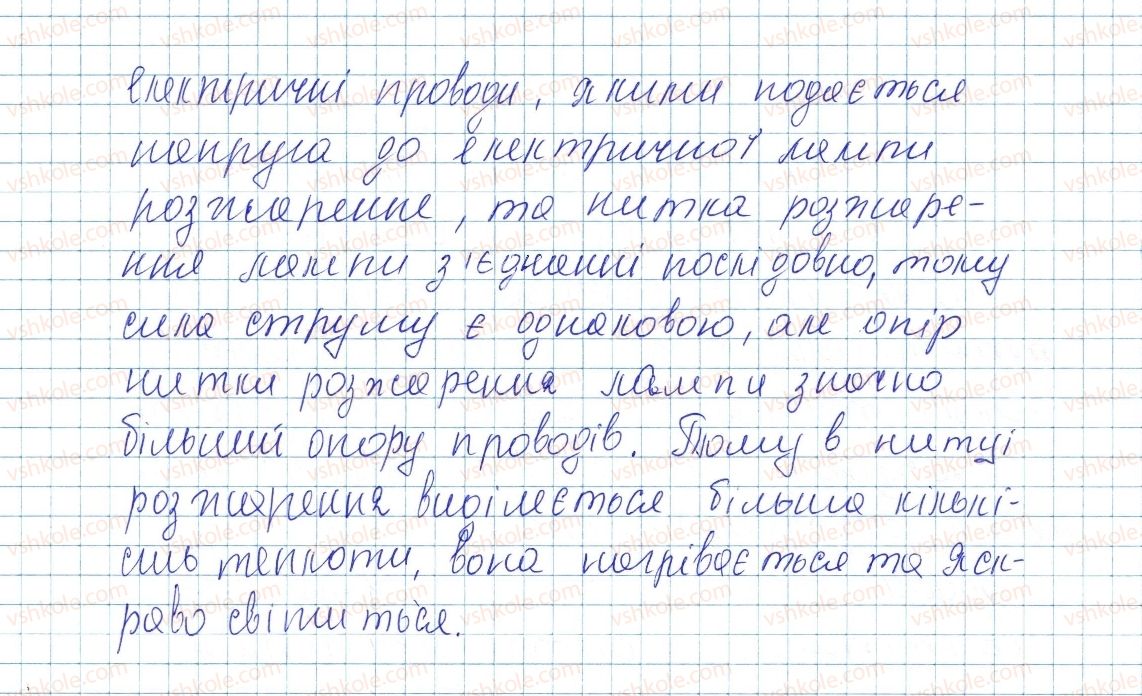 електричні проводи, якими подається
напруга до електричної лампи
розжарення, та нитка розжаре-
ння лампи з'єднанні послідовно, тому
сила струму є однаковою, але опір
нитки розжарення лампи значно
більший опору проводів. Тому в нитці
розжарення виділяється більша кількі-
сть теплоти, вона нагрівається та яск-
раво світиться.